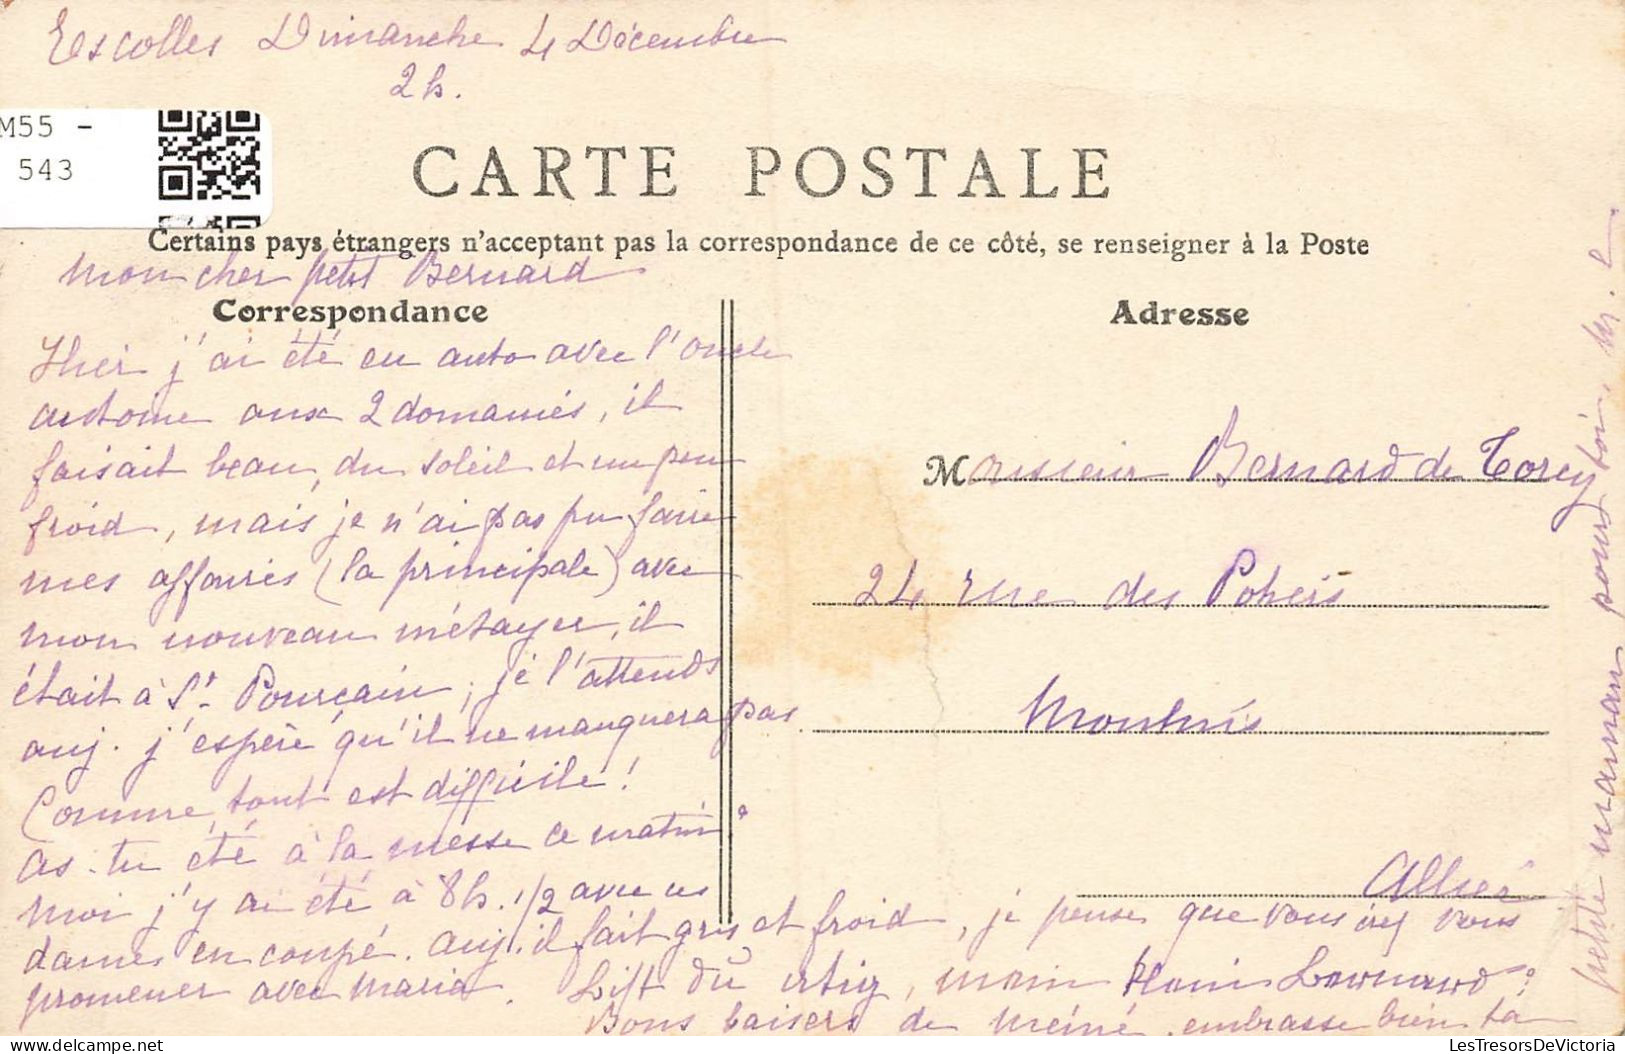 Escolles Dimanche 4 Décembre
2h.
M55 -
543
CARTE POSTALE
Certains pays étrangers n'acceptant pas la correspondance de ce côté, se renseigner à la Poste
mon cher petit Bernard
Correspondance
Adresse
Hier j'ai été en auto avec l'oncle
antoine aux 2 domaines, il
faisait beau, du soleil et un peu
froid, mais je n'ai pas pu faire
mes affaires (la principale) avec
mon nouveau métayer, il
était à St. Pourçain, je l'attends
auj. j'espère qu'il ne manquera pas
Comme tout est difficile!
as-tu été à la messe ce matin?
moi j'y ai été à 8h. 1/2 avec ces
dames en coupé. auj. il fait gris et froid, je pense que vous vous
promener avec maria. Lift du artig, mein Bernard?
Bons baisers de méiné. embrasse bien ta
petite maman pour toi. M. L
Monsieur Bernard de Torcy
24 rue des Potiers
Moulins
Allier
LesTresorsDeVictoria